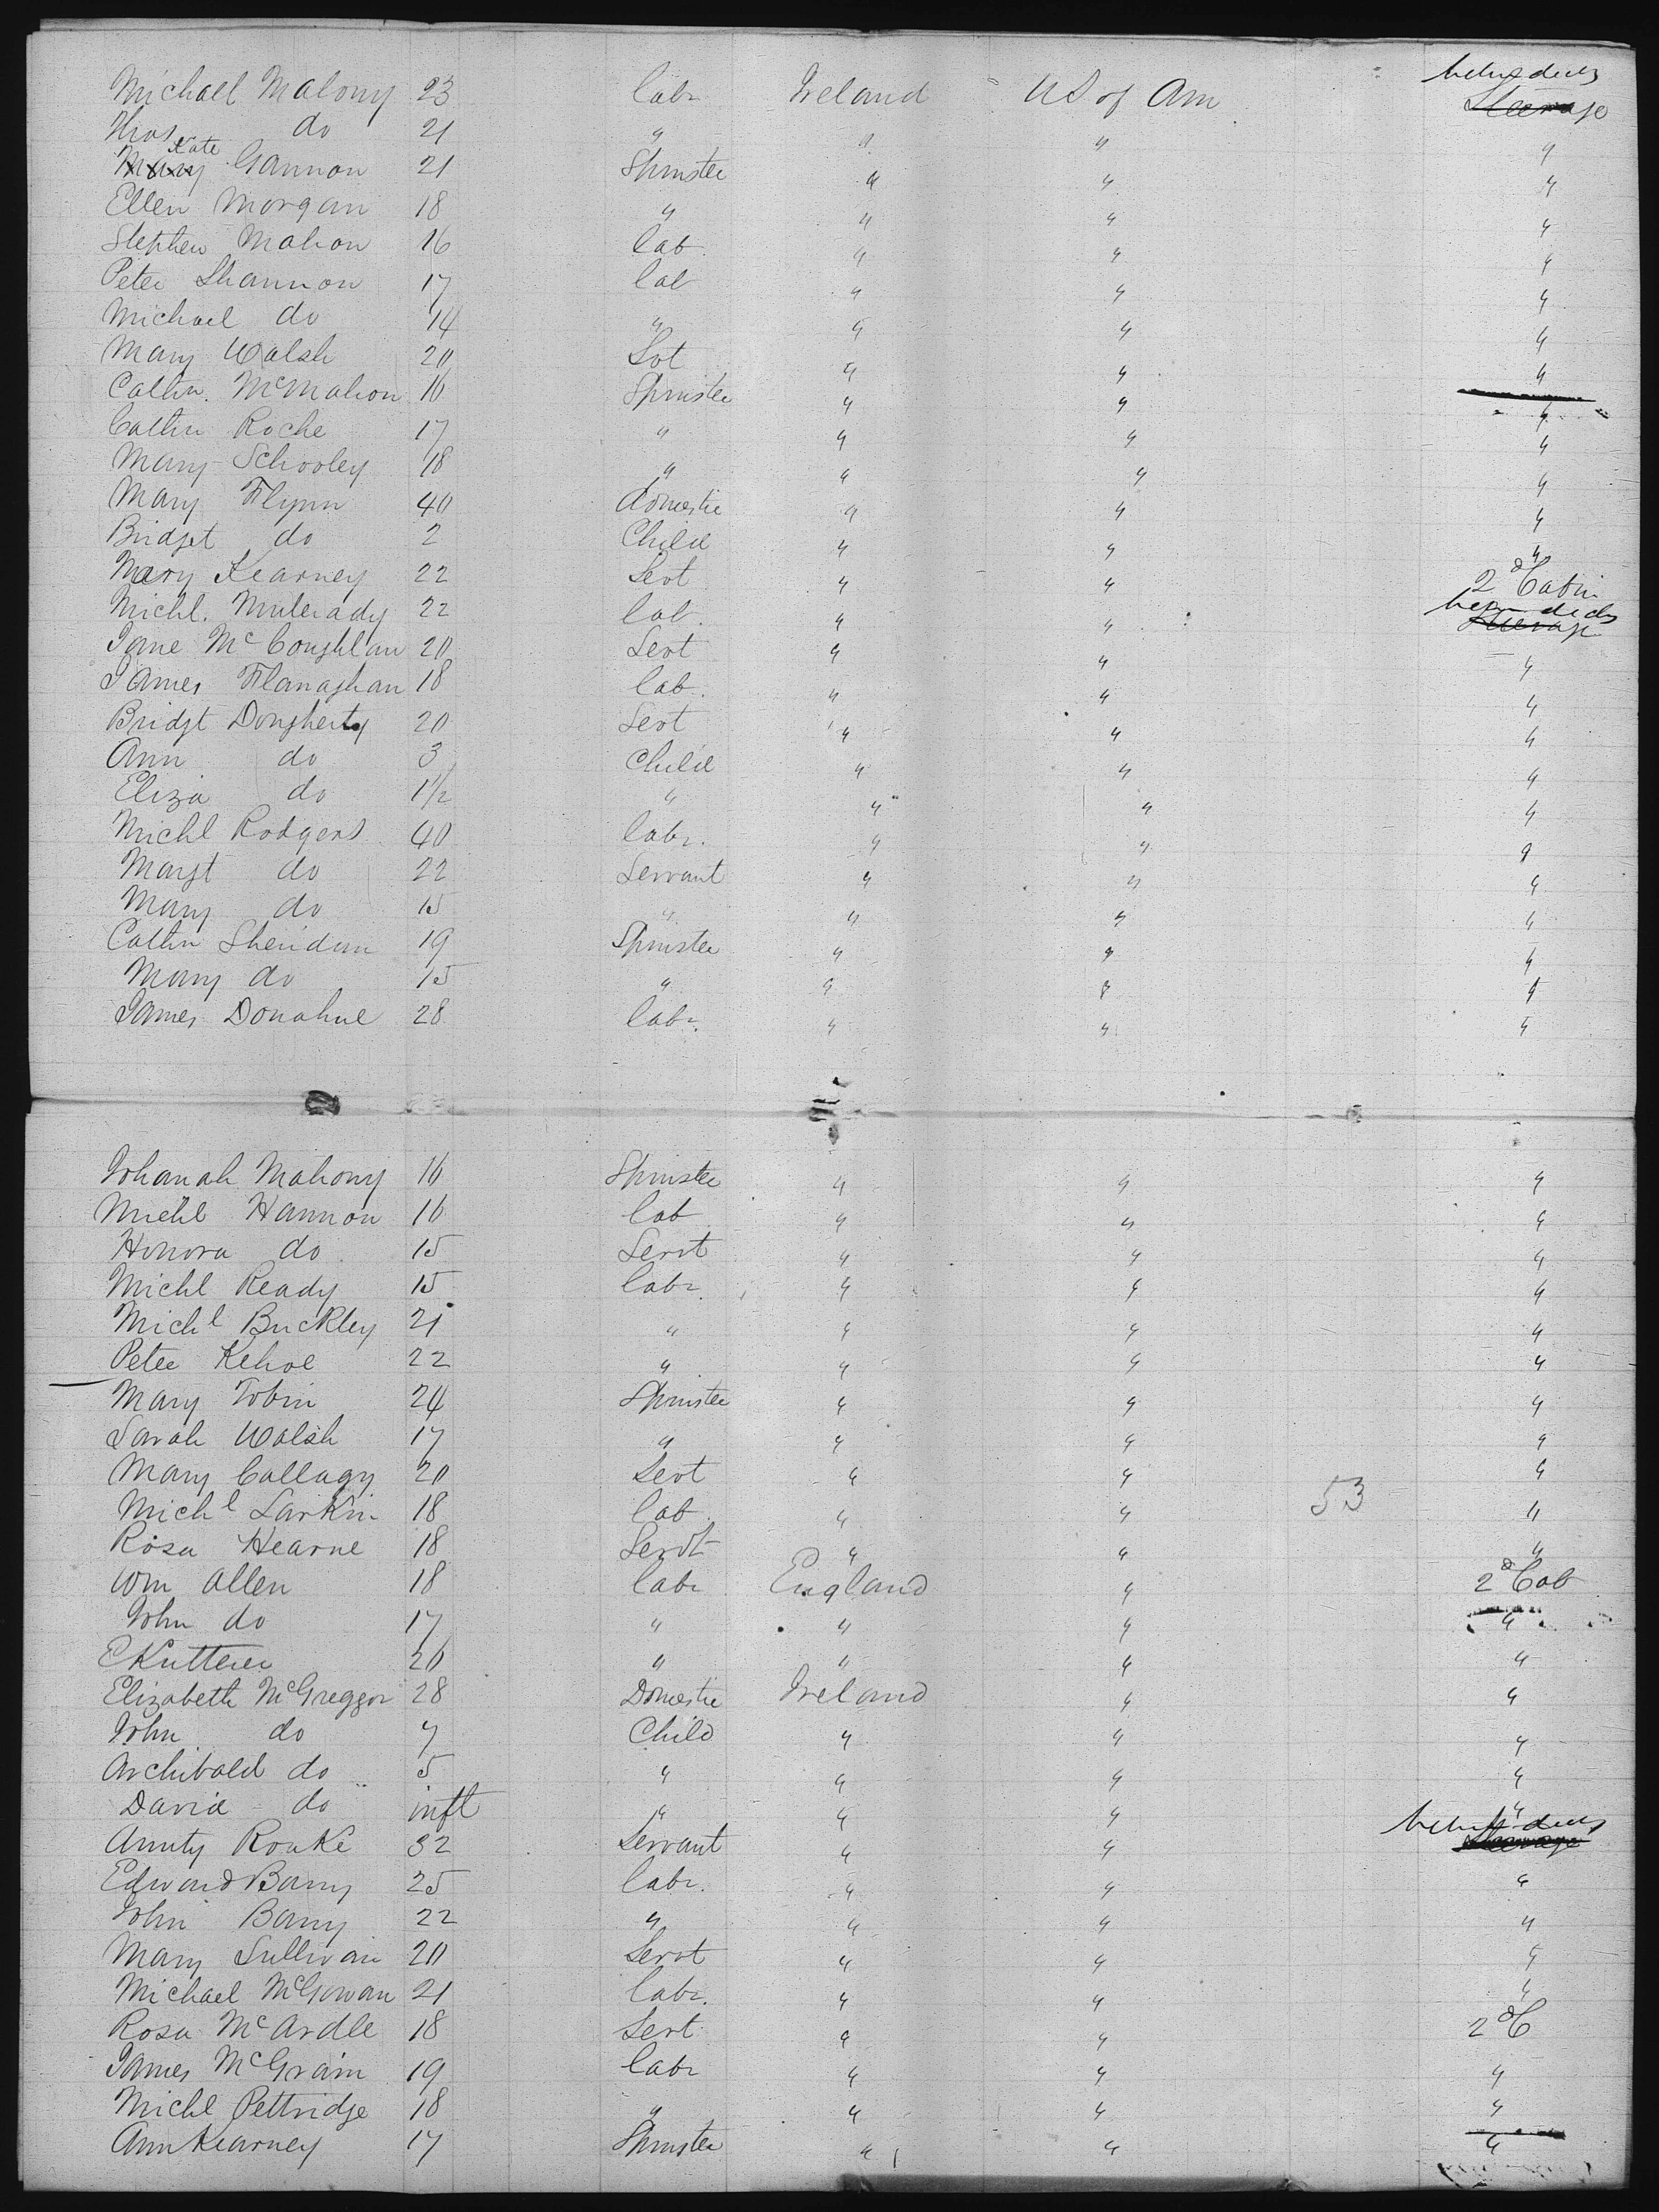 Michael Malony 23 labr Ireland US of Am between decks Steerage
Thos do 21 " " " "
Mary Kate Gannon 21 Spinster " " "
Ellen Morgan 18 " " " "
Stephen Mahon 16 lab. " " "
Peter Shannon 17 lab " " "
Michael do 14 " " " "
Mary Walsh 20 Svt " " "
Cathn. McMahon 16 Spinster " " "
Cathn Roche 17 " " " "
Mary Schooley 18 " " " "
Mary Flynn 40 domestic " " "
Bridget do 2 Child " " "
Mary Kearney 22 Servt " " 2d Cabin
Michl. Mulcrady 22 lab. " " between decks Steerage
Jane McCoughlan 20 Servt " " "
James Flanaghan 18 lab. " " "
Bridgt Dougherty 20 Servt " " "
Ann do 3 Child " " "
Eliza do 1 1/2 " " " "
Michl Rodgers 40 labr. " " "
Margt do 22 Servant " " "
Mary do 15 " " " "
Cathn Sheridan 19 Spinster " " "
Mary do 15 " " " "
James Donahue 28 labr. " " "
Johanah Mahony 16 Spinster " " "
Michl Hannon 16 lab " " "
Honora do 15 Servt " " "
Michl Ready 15 labr. " " "
Michl Buckley 21 " " " "
Peter Kehoe 22 " " " "
Mary Tobin 24 Spinster " " "
Sarah Walsh 17 " " " "
Mary Callagy 20 Servt " " "
Michl Larkin 18 lab. " " 53 "
Rosa Hearne 18 Servt " " "
Wm Allen 18 labr England " 2d Cab
John do 17 " " " "
E Kutterer 26 " " " "
Elizabeth McGreggor 28 Domestic Ireland " "
John do 7 Child " " "
Archibald do 5 " " " "
David do inft " " " "
Annty Rouke 32 Servant " " between decks Steerage
Edward Barry 25 labr. " " "
John Barry 22 " " " "
Mary Sullivan 20 Servt " " "
Michael McGowan 21 labr. " " "
Rosa McArdle 18 Servt " " 2d C
James McGrain 19 labr " " "
Michl Pettridge 18 " " " "
Ann Kearney 17 Spinster " " "